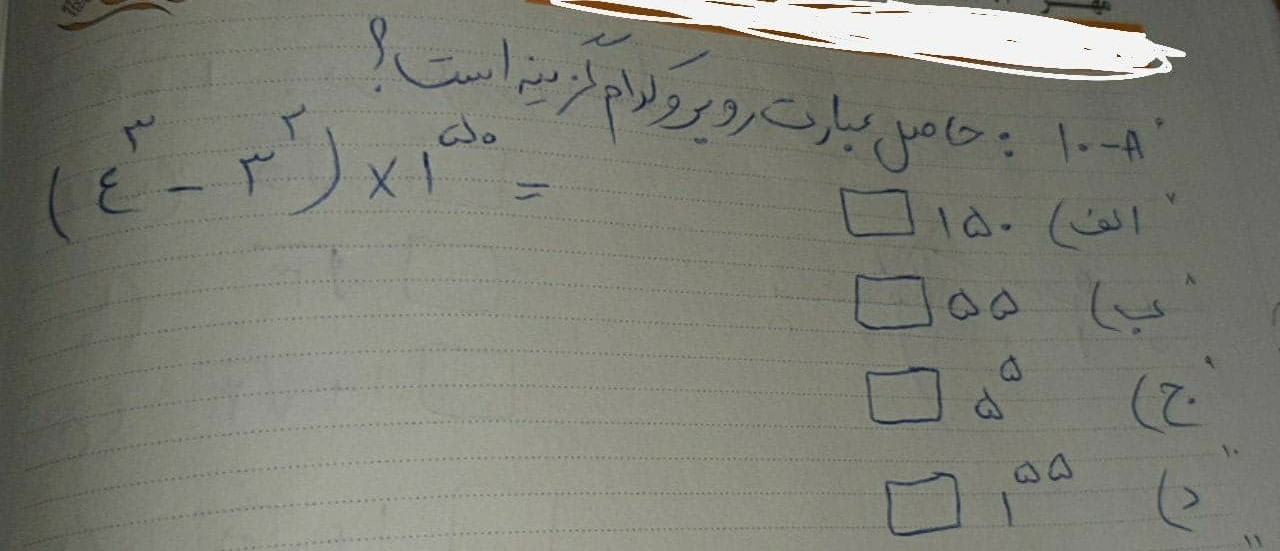 ۱۰-۸: حاصل عبارت روبرو کدام گزینه است؟
(۴^۳ − ۳^۲) × ۱^۵۰ =
الف) ۱۵۰ □
ب) ۵۵ □
ج) ۵^۵ □
د) ۱^۵۵ □